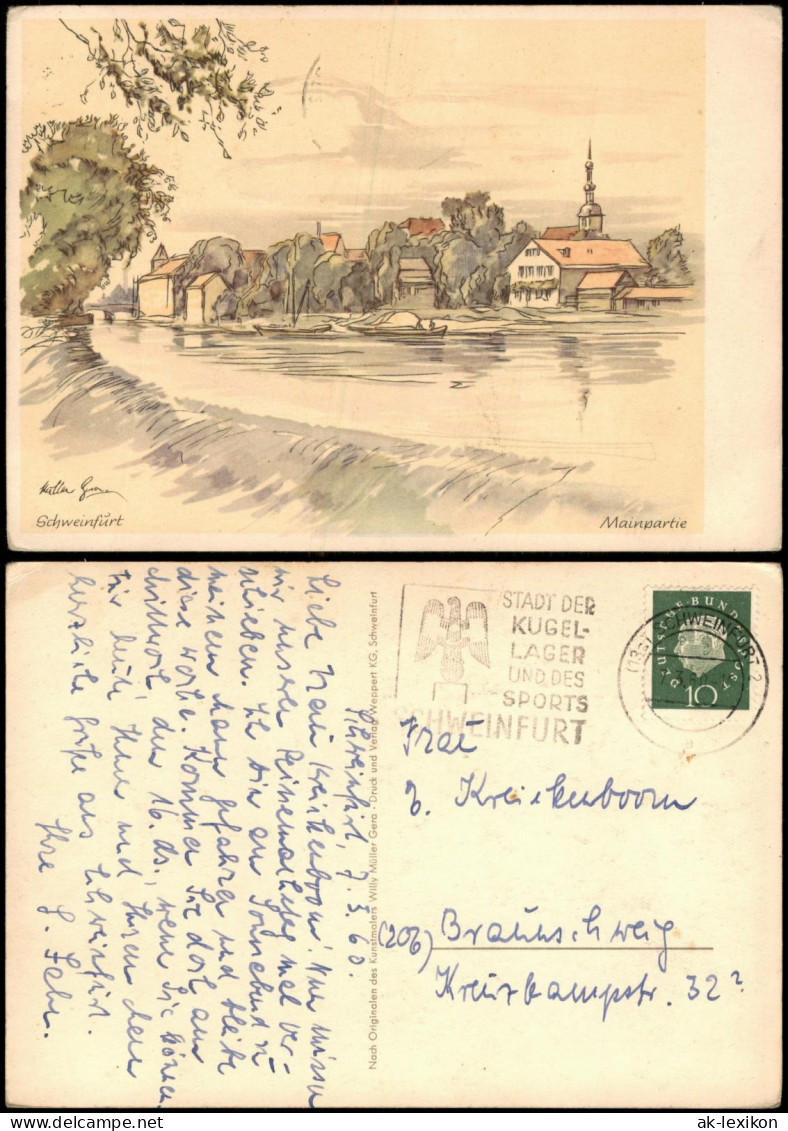 Müller Gera
Schweinfurt
Mainpartie
STADT DER
KUGEL-
LAGER
UND DES
SPORTS
SCHWEINFURT
(13a) SCHWEINFURT 2
DEUTSCHE BUNDESPOST
10
Schweinfurt, 7. 3. 60.
Liebe Frau Kreikenboom! Nun müssen
wir unseren Reinemachetag mal ver-
schieben. Ich bin am Sonnabend zu
meinem Mann gefahren und bleibe
diese Woche. Kommen Sie doch am
Mittwoch den 16. ds., wenn Sie können
Für heute Ihnen und Ihren
herzliche Grüße aus Schweinfurt.
Ihre
Nach Originalen des Kunstmalers Willy Müller Gera · Druck und Verlag Weppert KG, Schweinfurt
Frau
Kreikenboom
(20b) Braunschweig
Kreuzkampstr. 32
© ak-lexikon
ak-lexikon.com